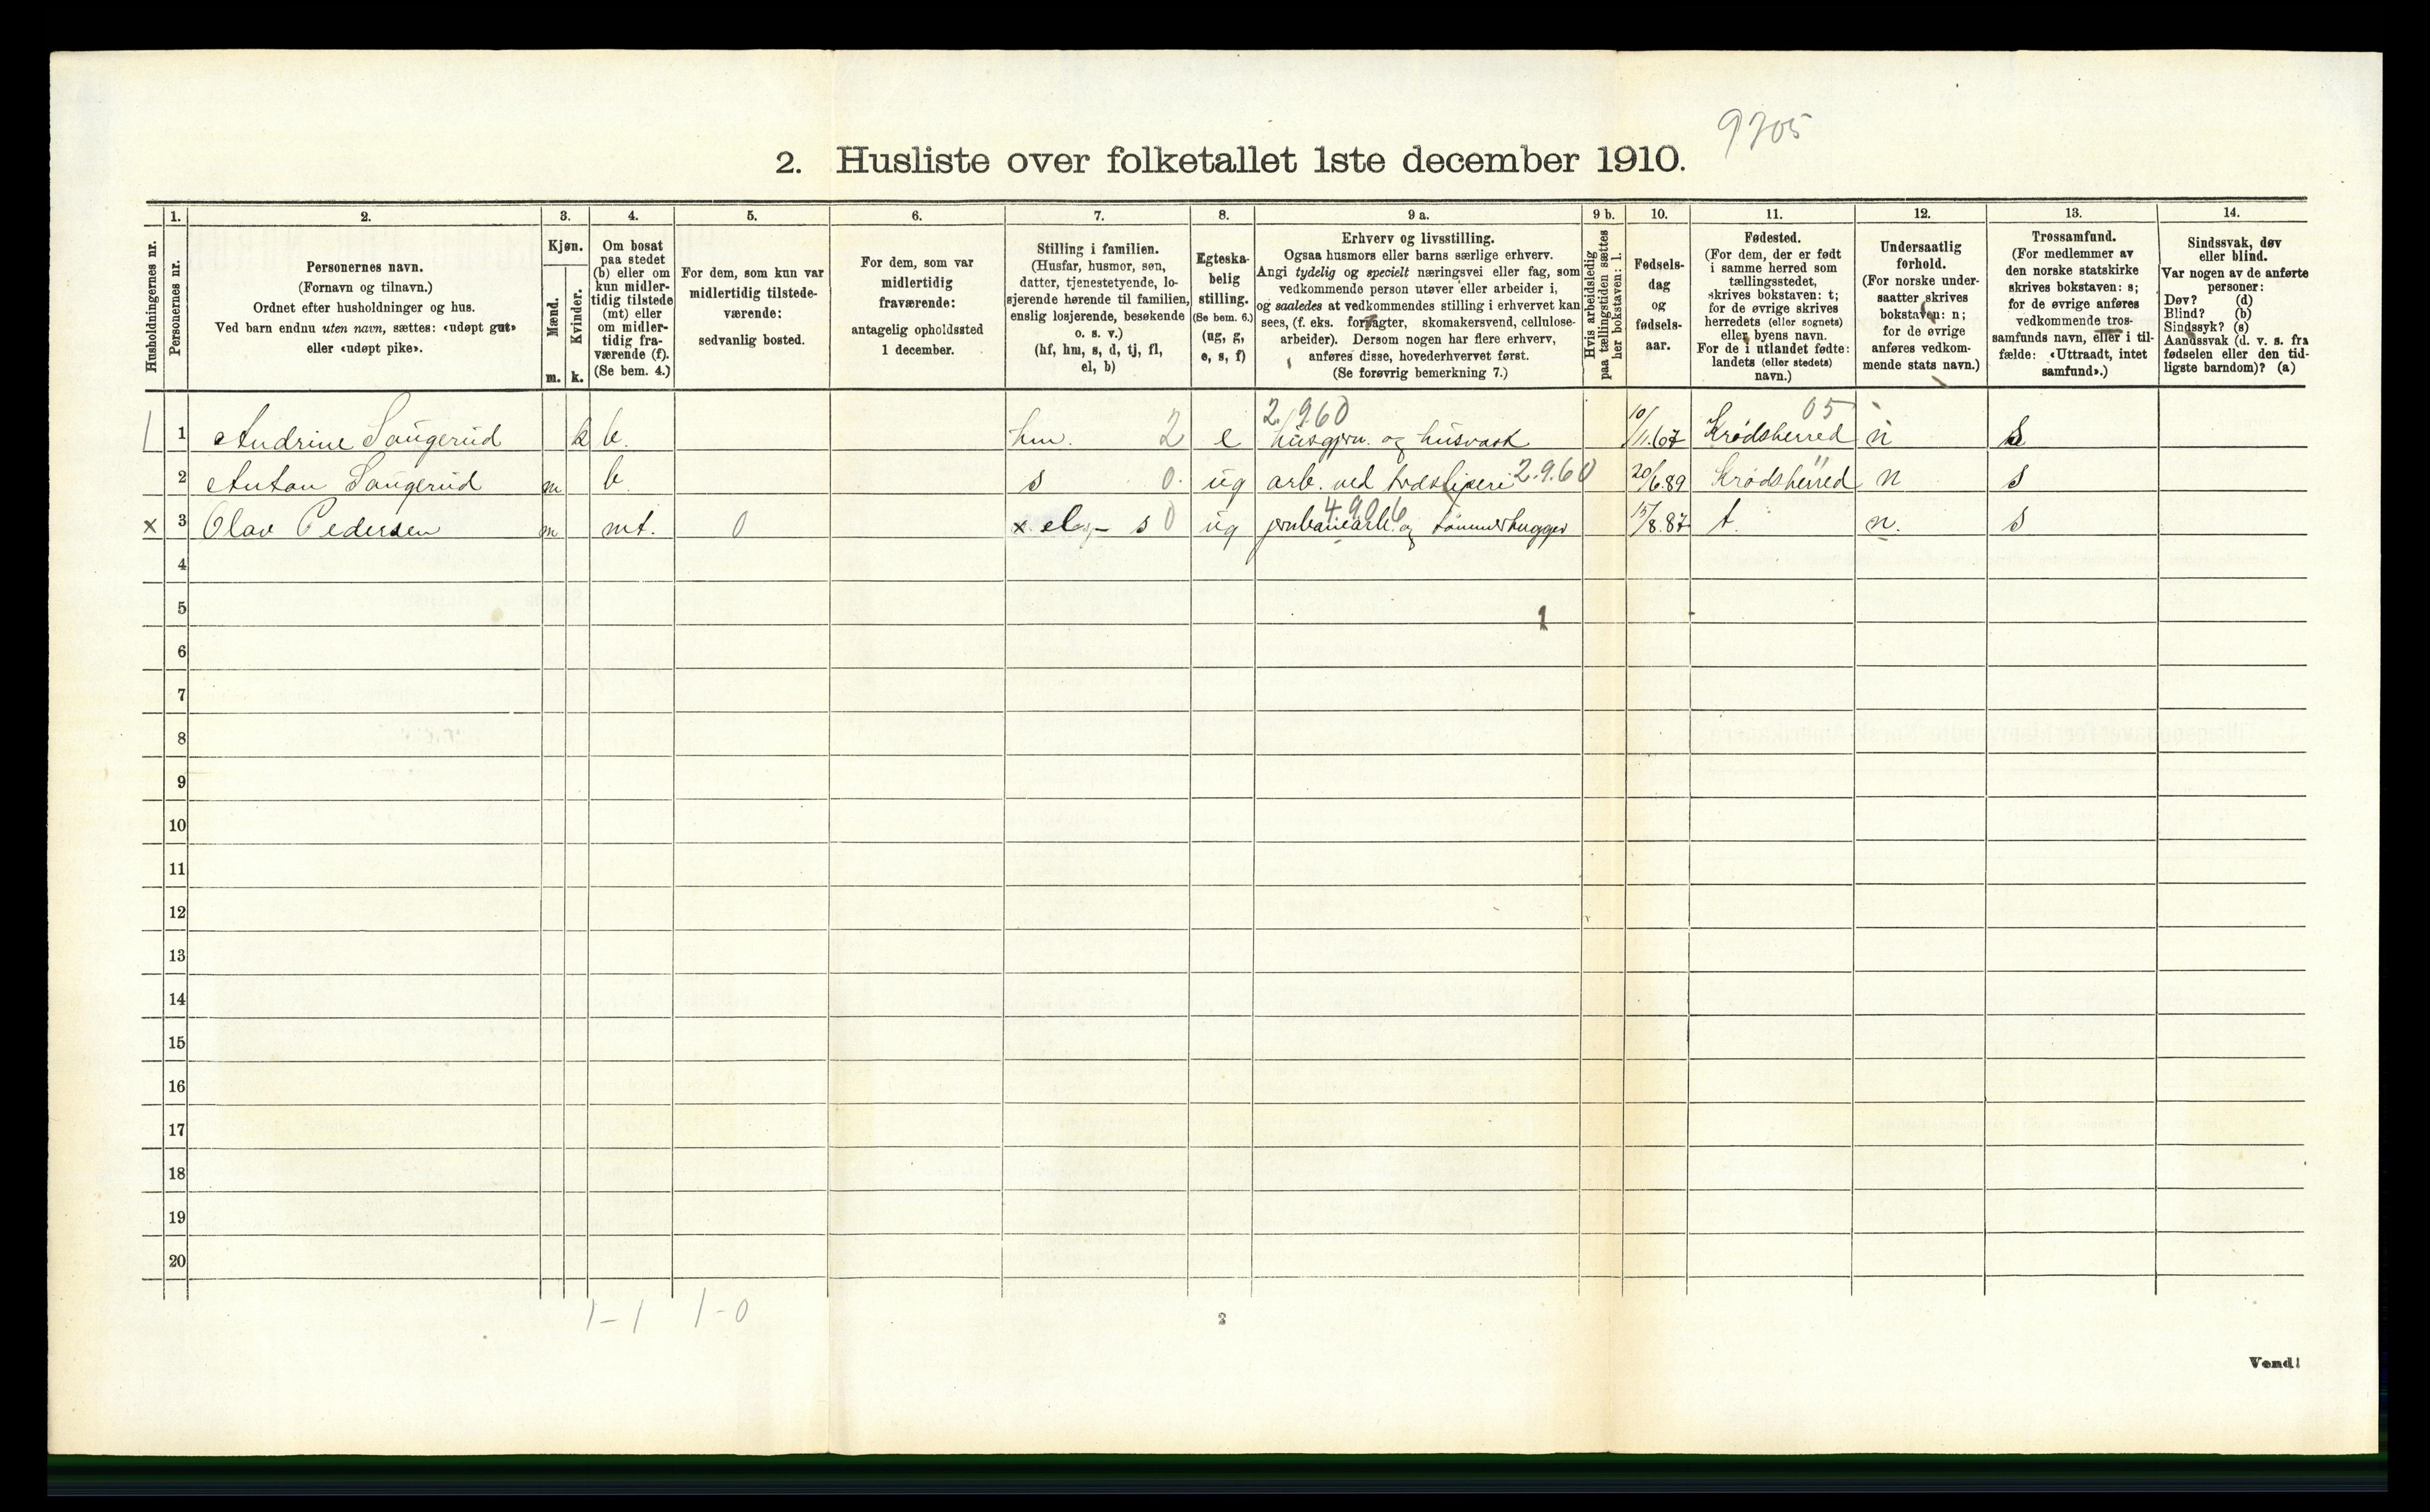 9705
2. Husliste over folketallet 1ste december 1910.
1. 2. 3. 4. 5. 6. 7. 8. 9 a. 9 b. 10. 11. 12. 13. 14.
Husholdningernes nr.
Personernes nr.
Personernes navn.
(Fornavn og tilnavn.)
Ordnet efter husholdninger og hus.
Ved barn endnu uten navn, sættes: «udøpt gut»
eller «udøpt pike».
Kjøn.
Mænd.
Kvinder.
m. k.
Om bosat
paa stedet
(b) eller om
kun midler-
tidig tilstede
(mt) eller
om midler-
tidig fra-
værende (f).
(Se bem. 4.)
For dem, som kun var
midlertidig tilstede-
værende:
sedvanlig bosted.
For dem, som var
midlertidig
fraværende:
antagelig opholdssted
1 december.
Stilling i familien.
(Husfar, husmor, søn,
datter, tjenestetyende, lo-
sjerende hørende til familien,
enslig losjerende, besøkende
o. s. v.)
(hf, hm, s, d, tj, fl,
el, b)
Egteska-
belig
stilling.
(Se bem. 6.)
(ug, g,
e, s, f)
Erhverv og livsstilling.
Ogsaa husmors eller barns særlige erhverv.
Angi tydelig og specielt næringsvei eller fag, som
vedkommende person utøver eller arbeider i,
og saaledes at vedkommendes stilling i erhvervet kan
sees, (f. eks. forpagter, skomakersvend, cellulose-
arbeider). Dersom nogen har flere erhverv,
anføres disse, hovederhvervet først.
(Se forøvrig bemerkning 7.)
Hvis arbeidsledig
paa tællingstiden sættes
her bokstaven: l.
Fødsels-
dag
og
fødsels-
aar.
Fødested.
(For dem, der er født
i samme herred som
tællingsstedet,
skrives bokstaven: t;
for de øvrige skrives
herredets (eller sognets)
eller byens navn.
For de i utlandet fødte:
landets (eller stedets)
navn.)
Undersaatlig
forhold.
(For norske under-
saatter skrives
bokstaven: n;
for de øvrige
anføres vedkom-
mende stats navn.)
Trossamfund.
(For medlemmer av
den norske statskirke
skrives bokstaven: s;
for de øvrige anføres
vedkommende tros-
samfunds navn, eller i til-
fælde: «Uttraadt, intet
samfund».)
Sindssvak, døv
eller blind.
Var nogen av de anførte
personer:
Døv? (d)
Blind? (b)
Sindssyk? (s)
Aandssvak (d. v. s. fra
fødselen eller den tid-
ligste barndom)? (a)
2.960 05
1 Andrine Saugerud k b. hm. 2 e husgjern. og husvask 10/11.67 Krødsherred n s
2 Anton Saugerud m b. s 0. ug arb. ved træsliperi 2.9.60 20/6.89 Krødsherred n s
4906
x 3 Olav Pedersen m mt. 0 x el. – s 0 ug jernbanearb. og tømmerhugger 15/8.87 t. n. s
4
5
6
7
8
9
10
11
12
13
14
15
16
17
18
19
20
1-1 1-0
2
Vend!